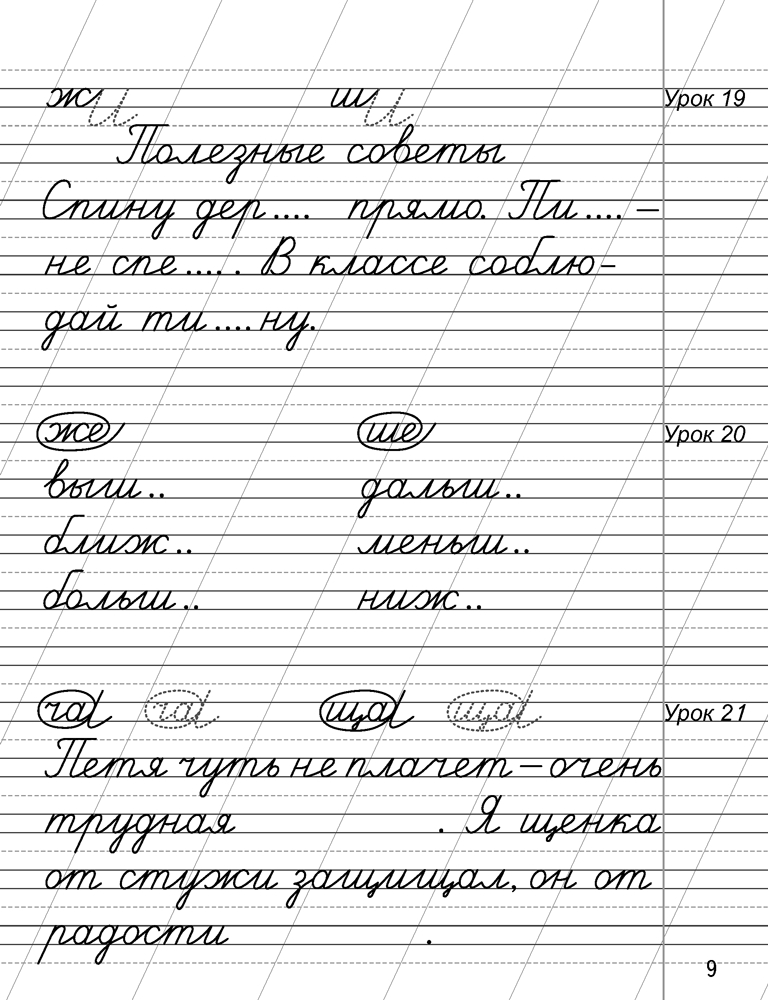 жи и ши и Урок 19
Полезные советы
Спину дер.... прямо. Пи.... –
не спе..... В классе соблю-
дай ти....ну.
же ше Урок 20
выш.. дальш..
ближ.. меньш..
больш.. ниж..
ча ча ща ща Урок 21
Петя чуть не плачет – очень
трудная .Я щенка
от стужи защищал, он от
радости .
9